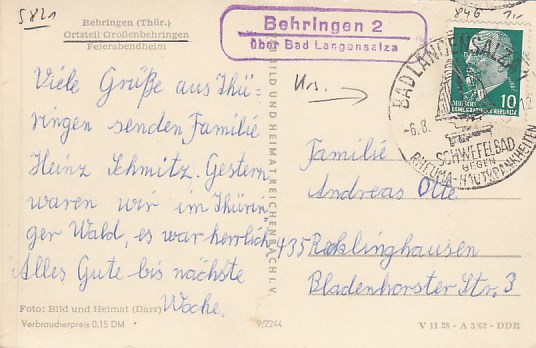 5821
Behringen (Thür.)
Ortsteil Großenbehringen
Feierabendheim
Behringen 2
über Bad Langensalza
846
BAD LANGENSALZA
-6.8.
SCHWEFELBAD
GEGEN
RHEUMA-HAUTKRANKHEITEN
DEUTSCHE
DEMOKRATISCHE REPUBLIK
10
Viele Grüße aus Thü-
ringen senden Familie
Heinz Schmitz. Gestern
waren wir im Thürin-
ger Wald, es war herrlich.
Alles Gute bis nächste
Woche.
BILD UND HEIMAT REICHENBACH I. V.
Familie
Andreas Otte
435 Recklinghausen
Bladenhorster Str. 3
Foto: Bild und Heimat (Darr)
Verbraucherpreis 0,15 DM
9/2244
V 11 28 - A 3/63 - DDR